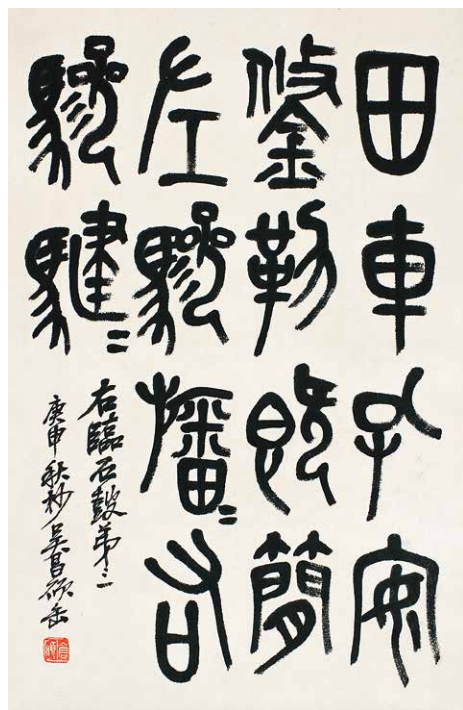 田車孔安
鋚勒既簡
左驂旛〻右
驂騝〻
右臨石鼓第三
庚申秋杪吳昌碩缶